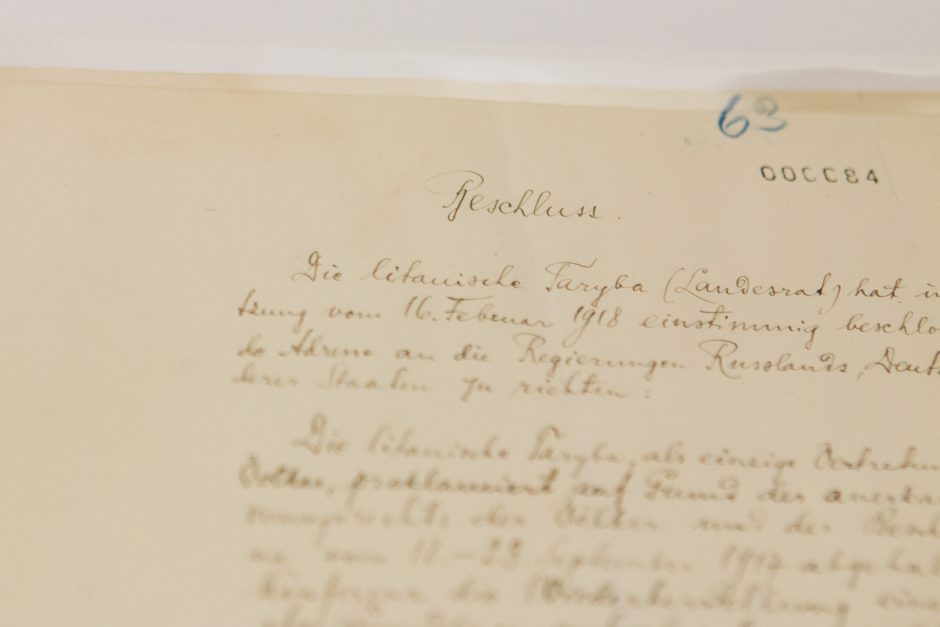 63
00CCC84
Beschluss.
Die litauische Taryba (Landesrat) hat in
tzung vom 16. Februar 1918 einstimmig beschlo
de Adresse an die Regierungen Russlands, Deuts
derer Staaten zu richten:
Die litauische Taryba, als einzige Vertretun
Volkes, proklamiert auf Grund der anerka
mungsrechts der Völker und der Besch
na vom 18.–23. September 1917 abgehal
Konferenz die Wiederherstellung eine